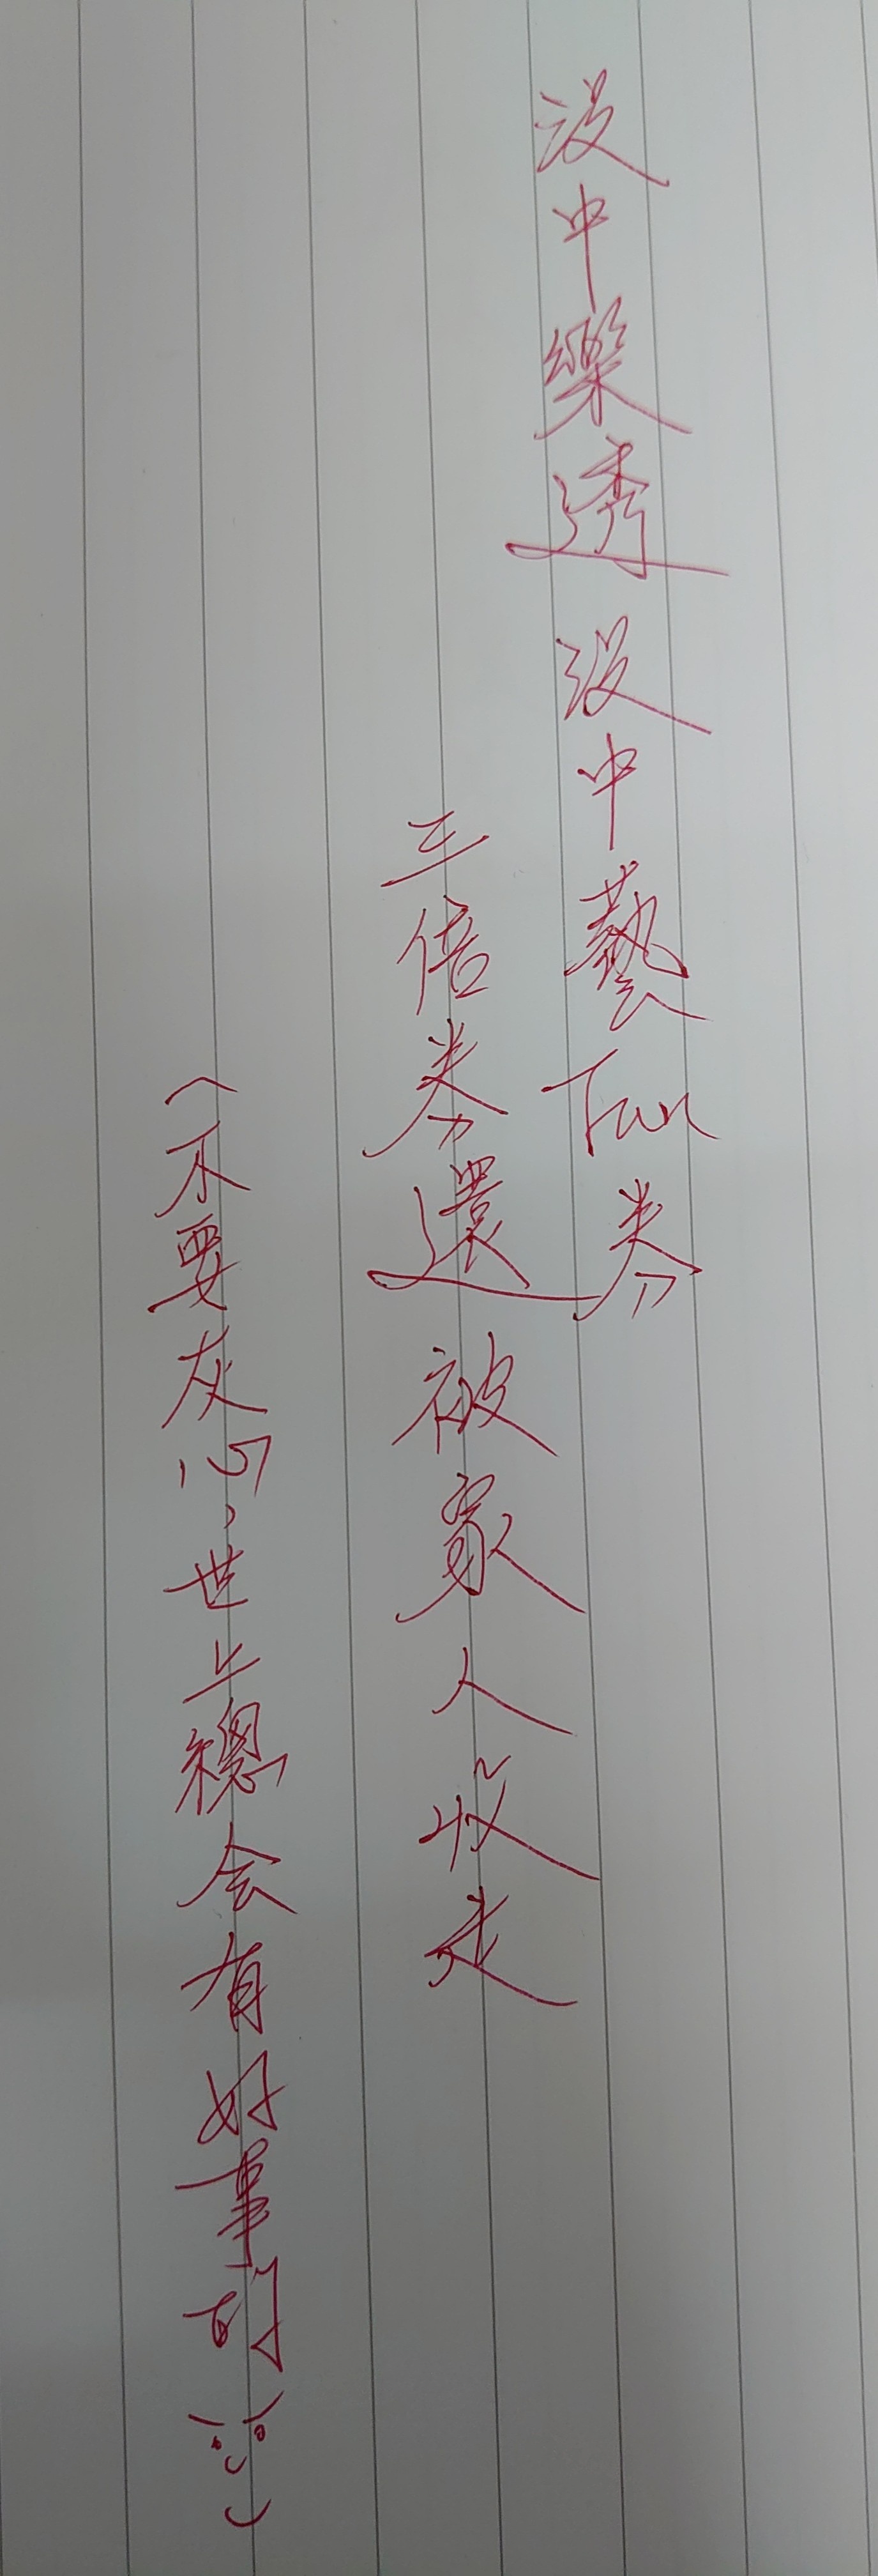 沒中樂透 沒中藝Fun券
三倍券還被家人收走
(不要灰心,世上總会有好事的 (:3)